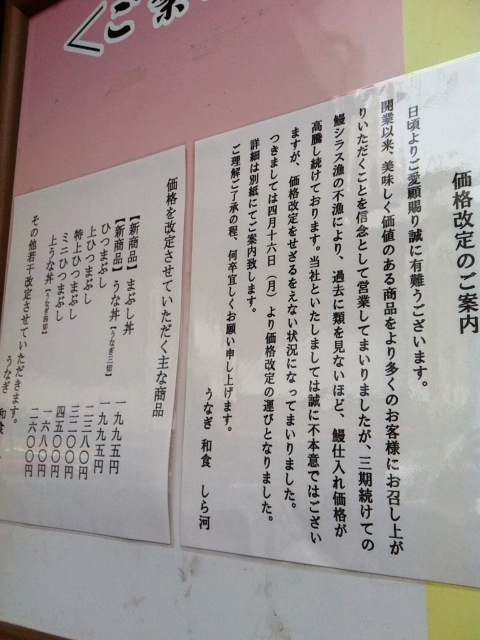 価格改定のご案内
日頃よりご愛顧賜り誠に有難うございます。
開業以来、美味しく価値のある商品をより多くのお客様にお召し上が
りいただくことを信念として営業してまいりましたが、三期続けての
鰻シラス漁の不漁により、過去に類を見ないほど、鰻仕入れ価格が
高騰し続けております。当社といたしましては誠に不本意ではござい
ますが、価格改定をせざるをえない状況になってまいりました。
つきましては四月十六日（月）より価格改定の運びとなりました。
詳細は別紙にてご案内致します。
ご理解ご了承の程、何卒宜しくお願い申し上げます。
うなぎ 和食 しら河
価格を改定させていただく主な商品
【新商品】まぶし丼 一九九五円
【新商品】うな丼【うなぎ三切】 一九九五円
ひつまぶし 二三八〇円
上ひつまぶし 三二〇〇円
特上ひつまぶし 四五〇〇円
ミニひつまぶし 一六八〇円
上うな丼【うなぎ四切】 二六〇〇円
その他若干改定させていただきます。
うなぎ 和食